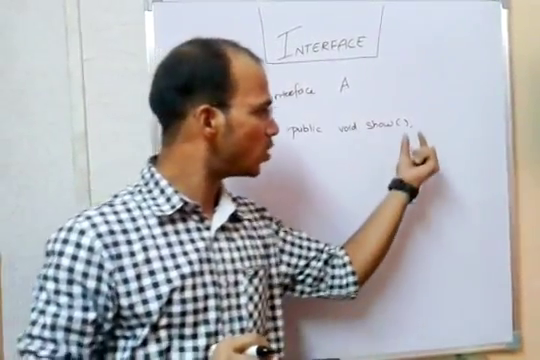 INTERFACE
interface A
public void show();